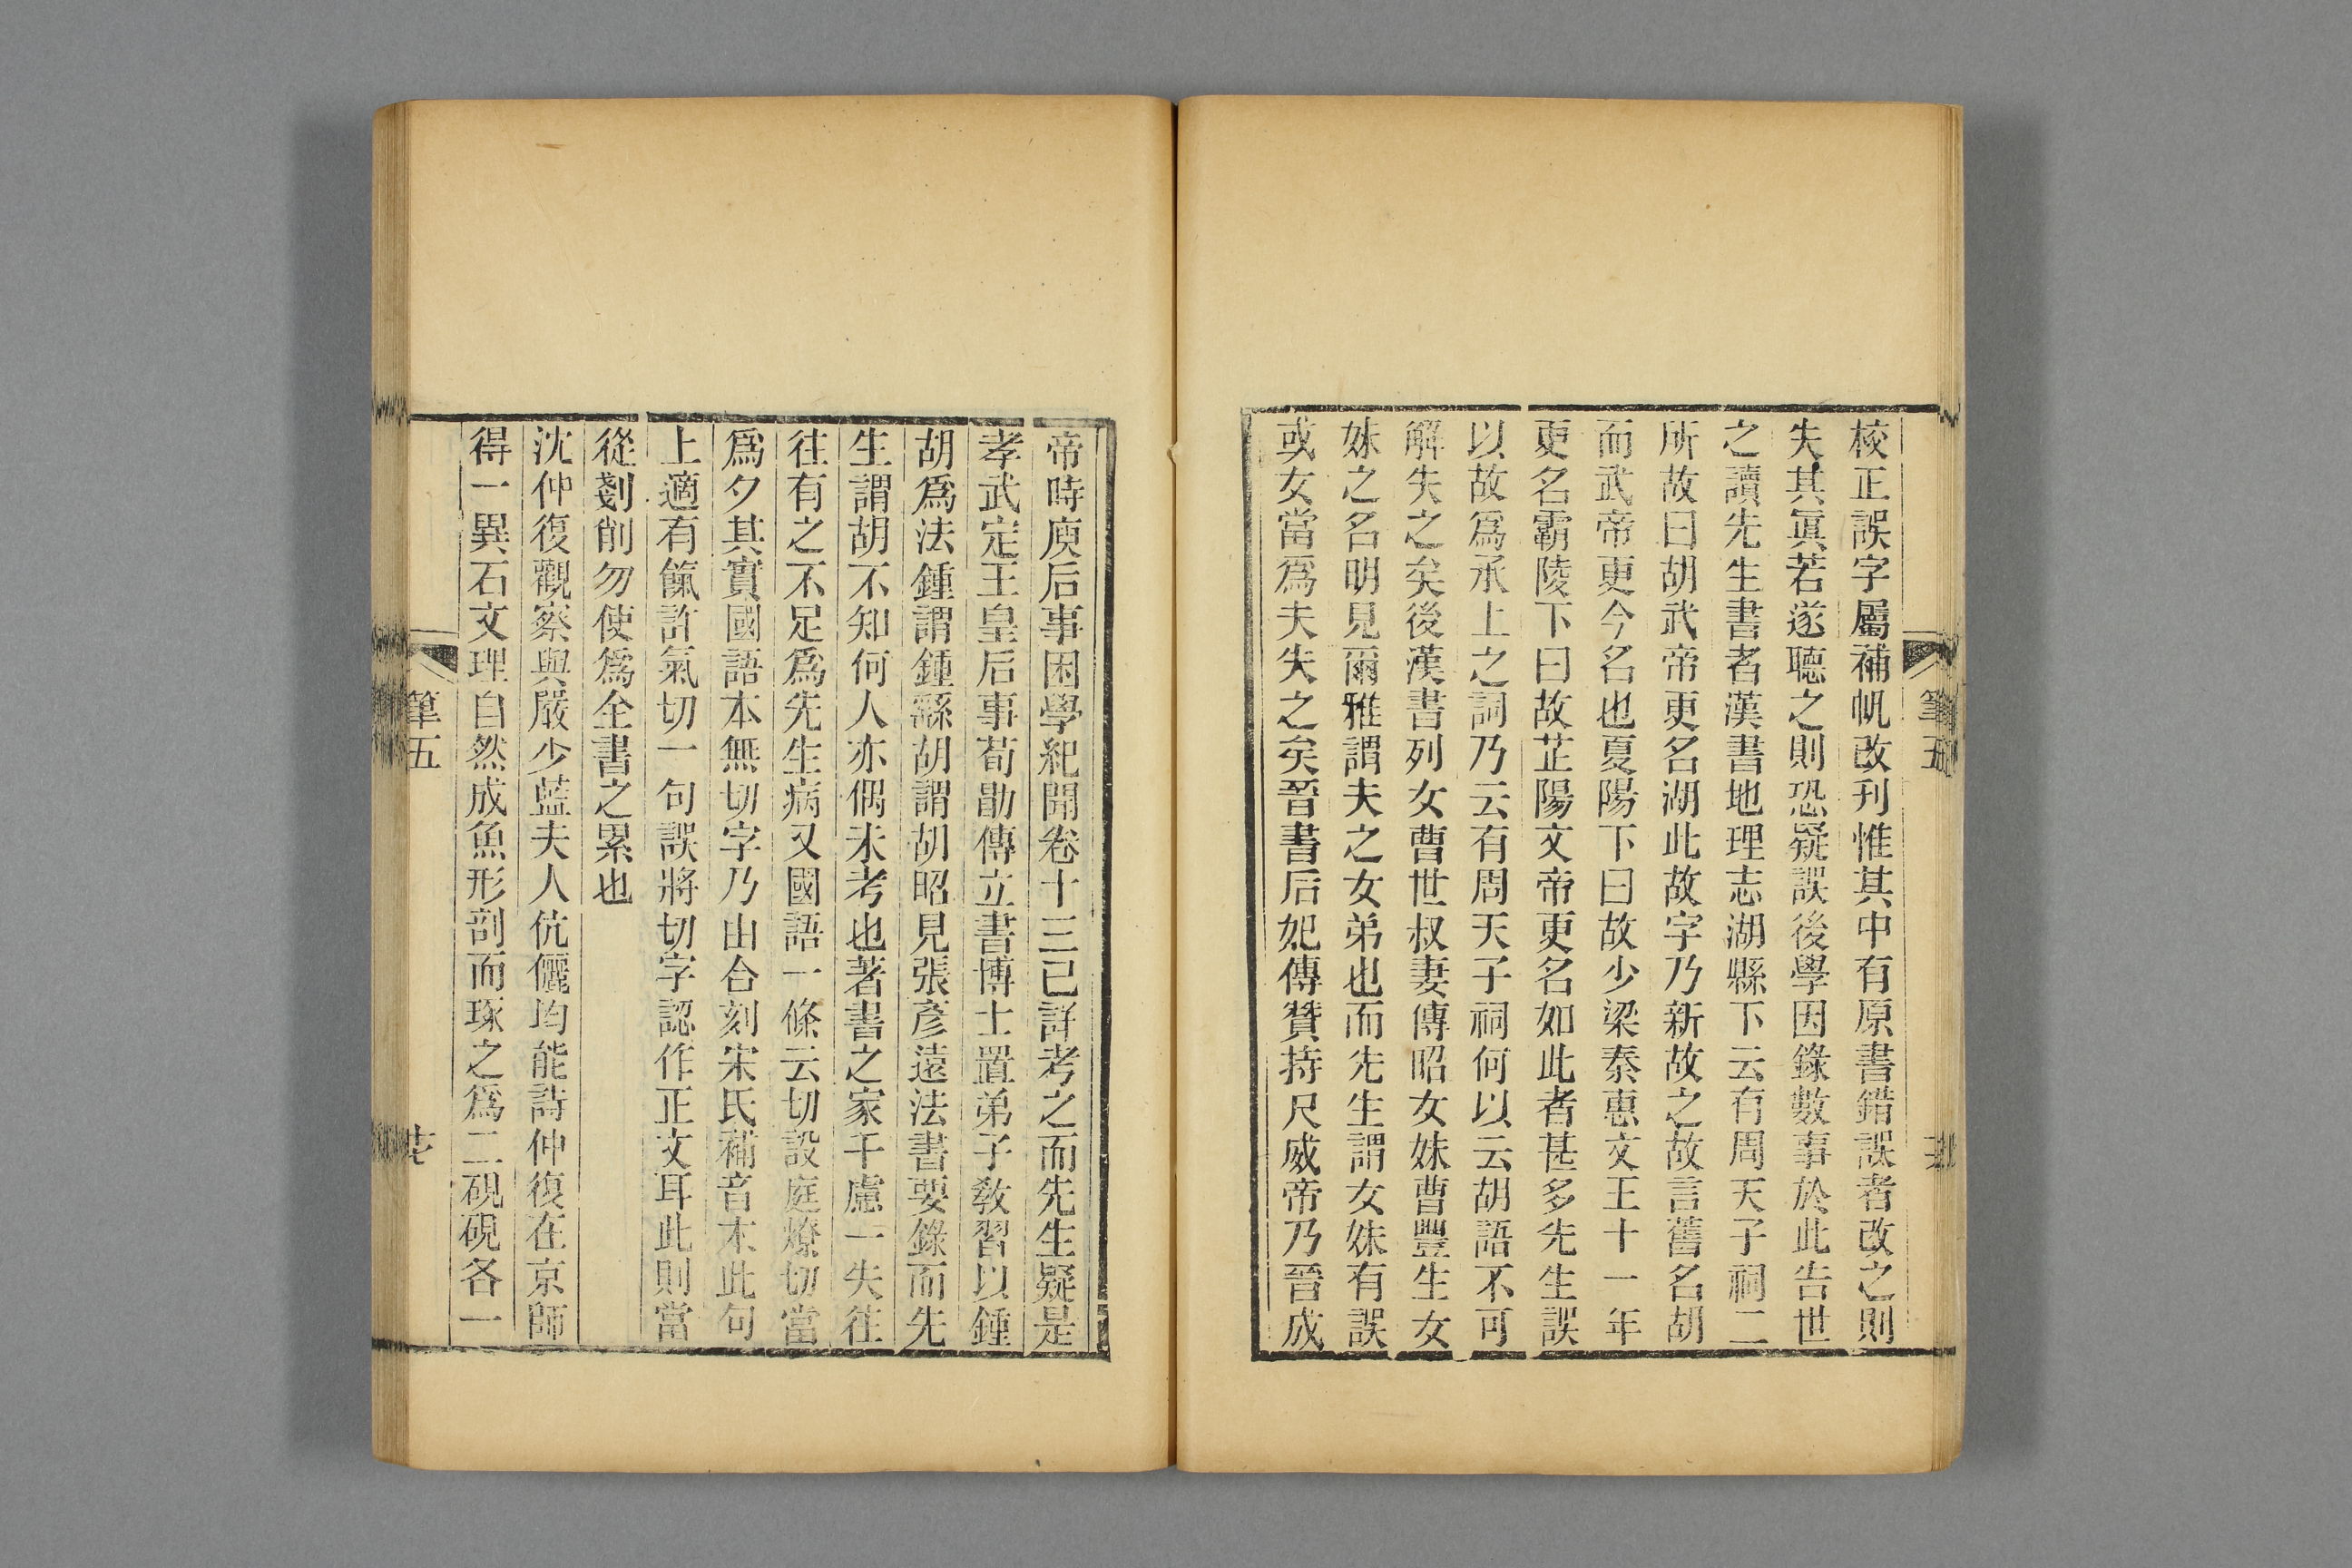 校正誤字屬補帆改刊惟其中有原書錯誤者改之則
失其眞若遂聽之則恐疑誤後學因錄數事於此告世
之讀先生書者漢書地理志湖縣下云有周天子祠二
所故曰胡武帝更名湖此故字乃新故之故言舊名胡
而武帝更今名也夏陽下曰故少梁秦惠文王十一年
更名霸陵下曰故芷陽文帝更名如此者甚多先生誤
以故爲承上之詞乃云有周天子祠何以云胡語不可
解失之矣後漢書列女曹世叔妻傳昭女妹曹豐生女
妹之名明見爾雅謂夫之女弟也而先生謂女妹有誤
或女當爲夫失之矣晉書后妃傳贊持尺威帝乃晉成
筆五
帝時庾后事困學紀聞卷十三已詳考之而先生疑是
孝武定王皇后事荀勖傳立書博士置弟子敎習以鍾
胡爲法鍾謂鍾繇胡謂胡昭見張彥遠法書要錄而先
生謂胡不知何人亦偶未考也著書之家千慮一失往
往有之不足爲先生病又國語一條云切設庭燎切當
爲夕其實國語本無切字乃由合刻宋氏補音本此句
上適有餼許氣切一句誤將切字認作正文耳此則當
從剗削勿使爲全書之累也
沈仲復觀察與嚴少藍夫人伉儷均能詩仲復在京師
得一異石文理自然成魚形剖而琢之爲二硯硯各一
筆五